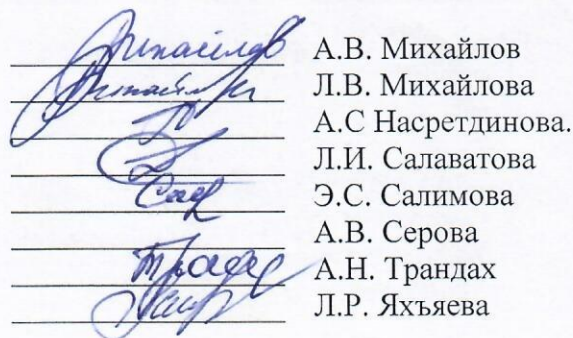 А.В. Михайлов
Л.В. Михайлова
А.С Насретдинова.
Л.И. Салаватова
Э.С. Салимова
А.В. Серова
А.Н. Трандах
Л.Р. Яхъяева